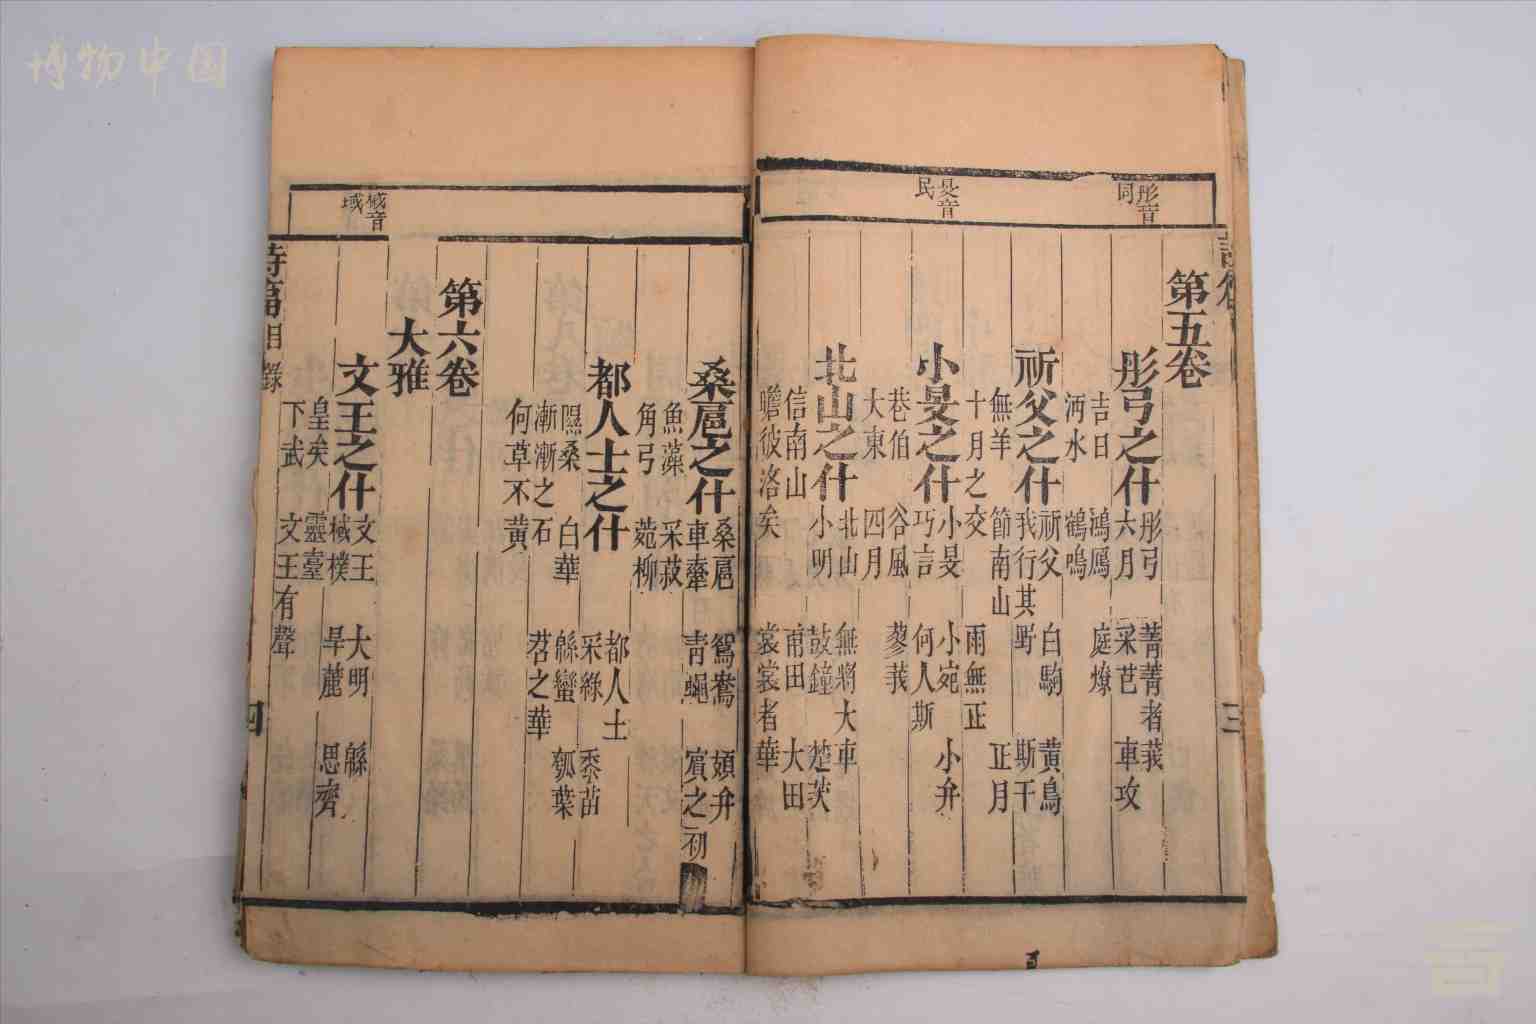 博物中国
彤音
同
旻音
民
詩篇
第五卷
彤弓之什
彤弓 菁菁者莪
六月 采芑 車攻
吉日 鴻鴈 庭燎
沔水 鶴鳴
祈父之什
祈父 白駒 黄鳥
我行其野 斯干
無羊 節南山 正月
十月之交 雨無正
小旻之什
小旻 小宛 小弁
巧言 何人斯
巷伯 谷風 蓼莪
大東 四月
北山之什
北山 無將大車
小明 鼓鐘 楚茨
信南山 甫田 大田
瞻彼洛矣 裳裳者華
三
棫音
域
桑扈之什
桑扈 鴛鴦 頍弁
車舝 青蠅 賓之初
魚藻 采菽
角弓 菀柳
都人士之什
都人士 黍苗
采綠
隰桑 白華 緜蠻 瓠葉
漸漸之石 苕之華
何草不黄
第六卷
大雅
文王之什
文王 大明 緜
棫樸 旱麓 思齊
皇矣 靈臺
下武 文王有聲
詩篇目錄
四